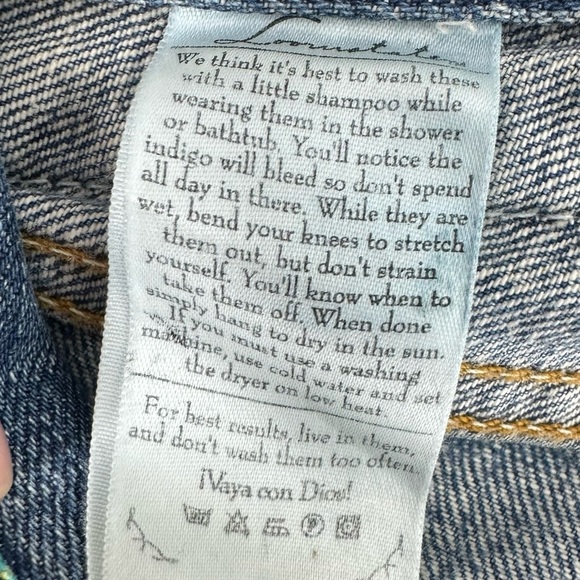 Loomstate
We think it's best to wash these
with a little shampoo while
wearing them in the shower
or bathtub. You'll notice the
indigo will bleed so don't spend
all day in there. While they are
wet, bend your knees to stretch
them out, but don't strain
yourself. You'll know when to
take them off. When done
simply hang to dry in the sun.
If you must use a washing
machine, use cold water and set
the dryer on low heat.
For best results, live in them,
and don't wash them too often.
¡Vaya con Dios!